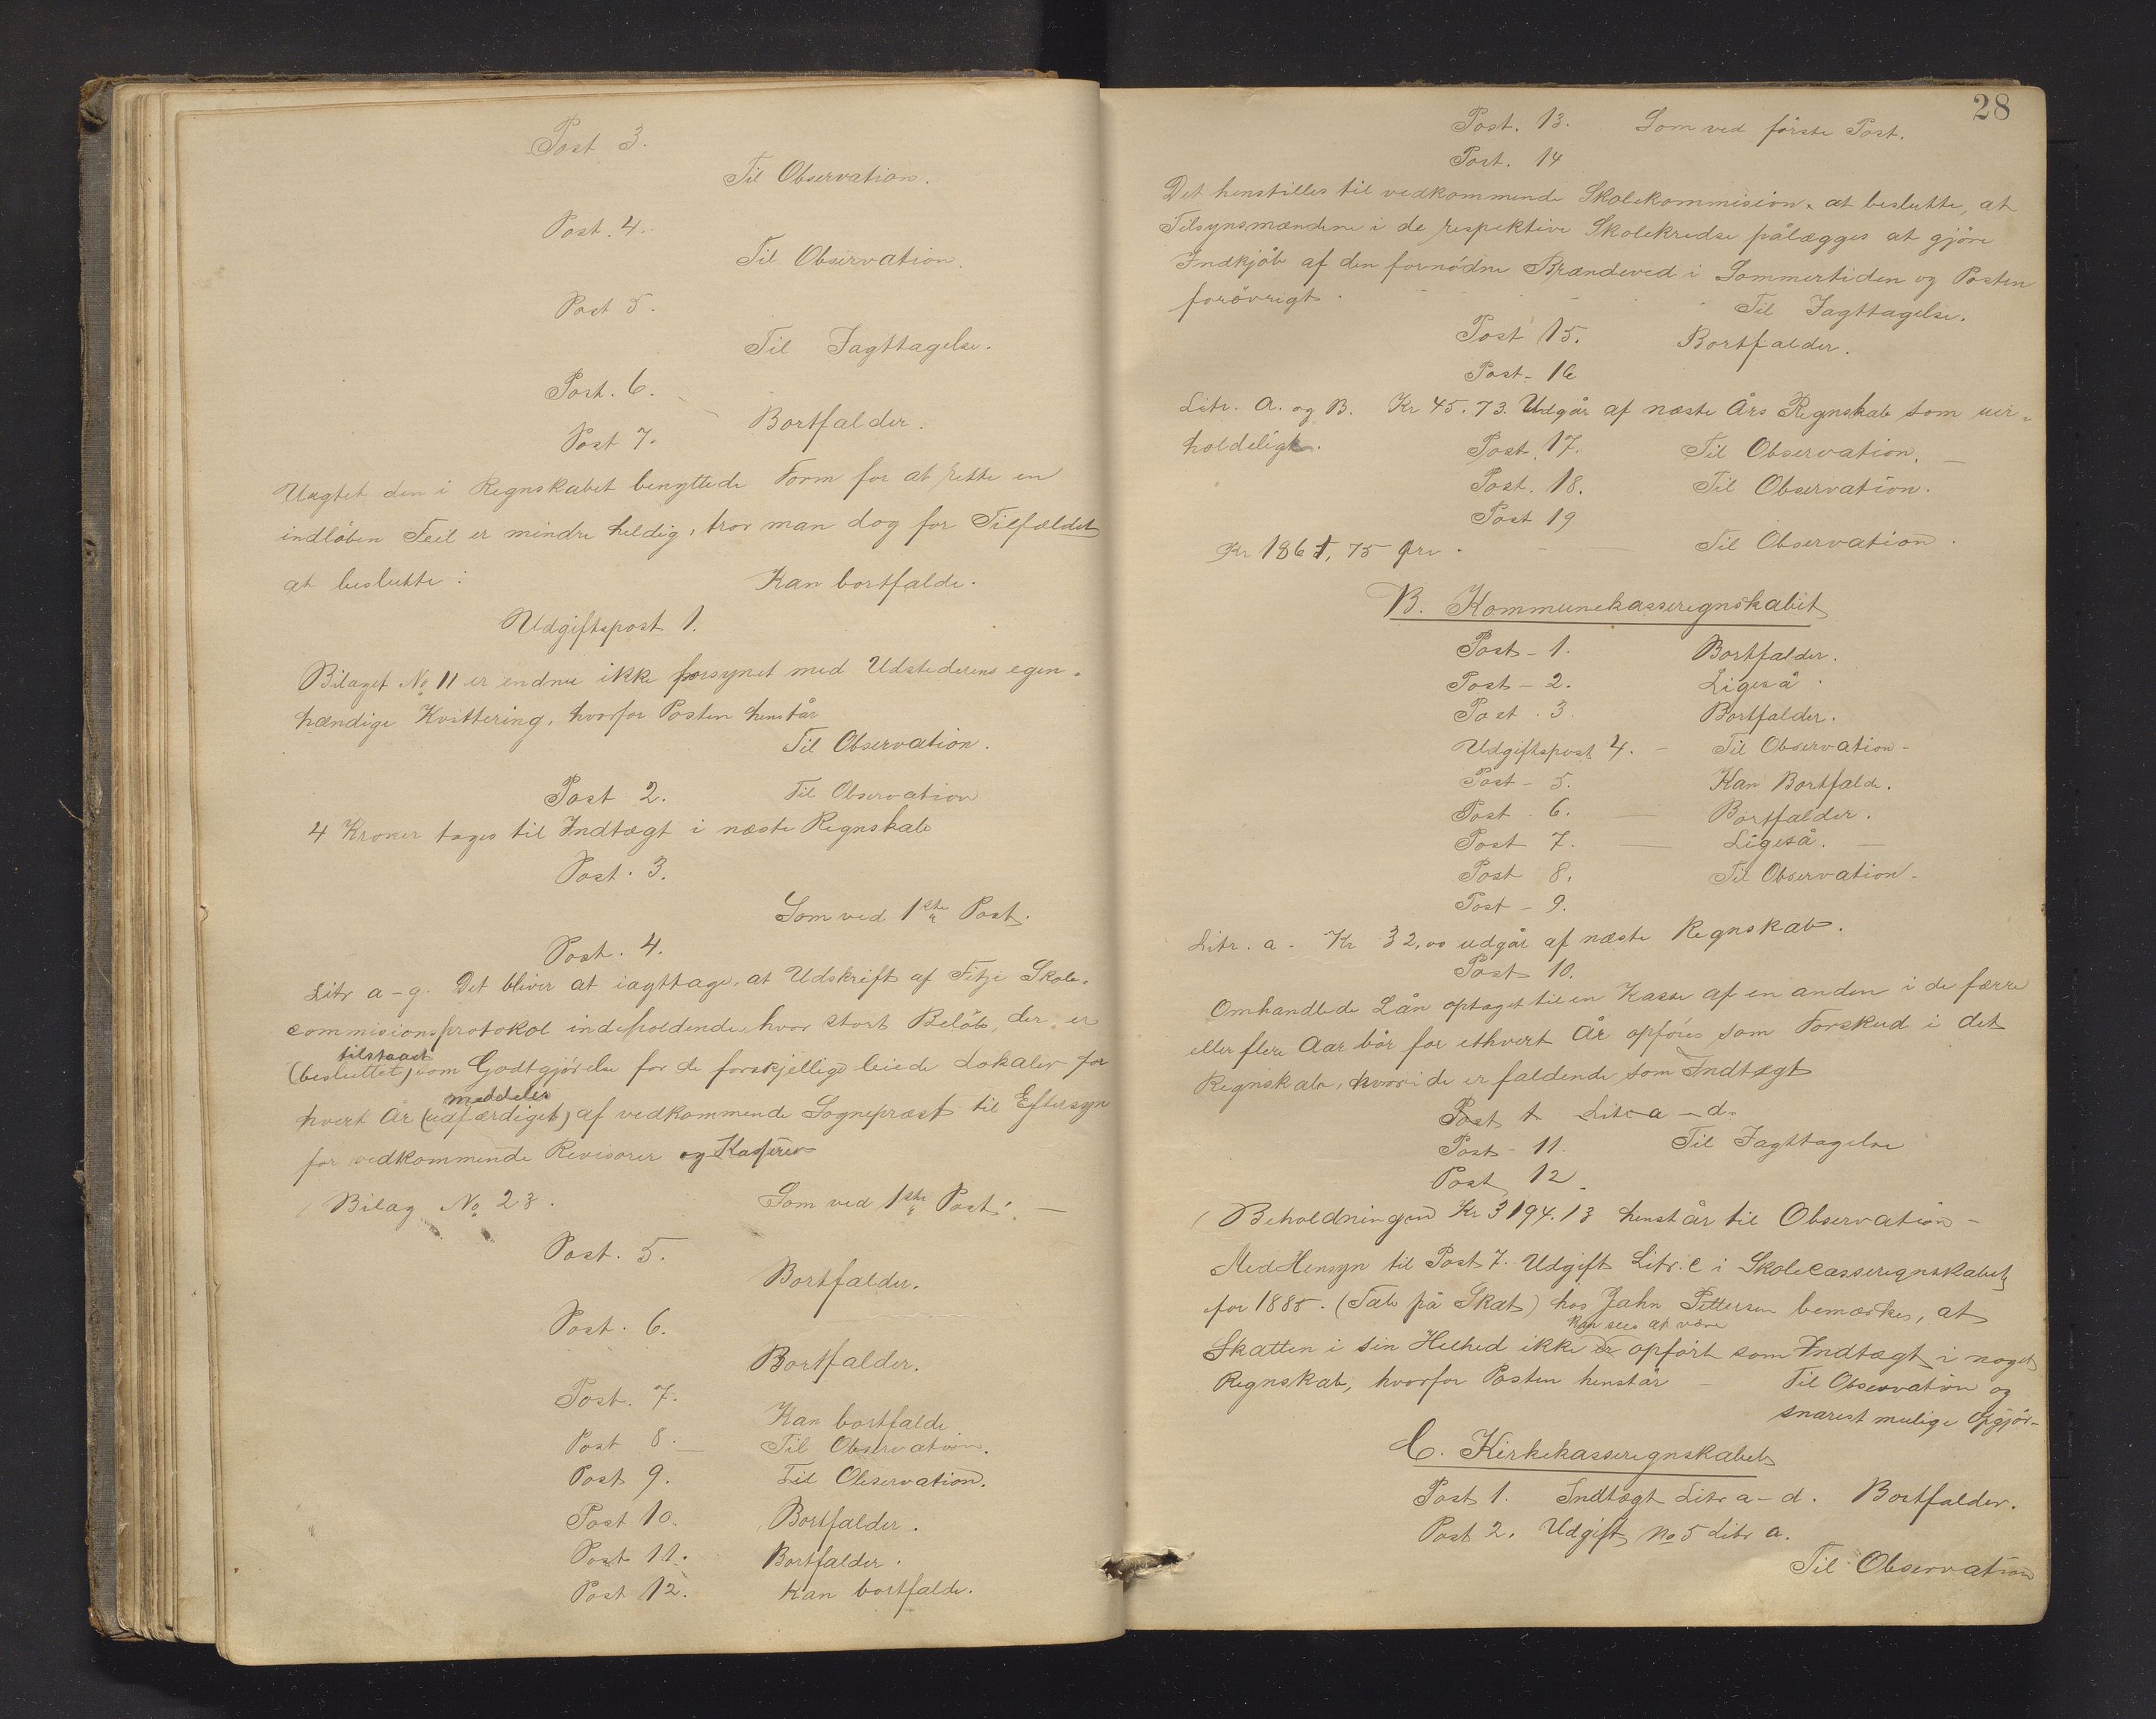 Post 3.
Til Observation.
Post. 4.
Til Observation.
Post 5.
Til Iagttagelse.
Post. 6.
Bortfalder.
Post 7.
Uagtet den i Regnskabet benyttede Form for at rette en
indløben Feil er mindre heldig, tror man dog for Tilfældet
at beslutte: Kan bortfalde.
Udgiftspost 1.
Bilaget No 11 er endnu ikke forsynet med Udstederens egen-
hændige Kvittering, hvorfor Posten henstår
Til Observation.
Post 2. Til Observation
4 Kroner tages til Indtægt i næste Regnskab
Post. 3.
Som ved 1ste Post.
Post. 4.
Litr a-g. Det bliver at iagttage, at Udskrift af Fitje Skole-
commisionsprotokol indeholdende, hvor stort Beløb, der er
tilstaaet
(besluttet) som Godtgjörelse for de forskjellige leiede Lokaler for
meddeles
hvert År (udfærdiget) af vedkommende Sognepræst til Eftersyn
for vedkommende Revisorer og Kasserer
Bilag No 23. Som ved 1ste Post. —
Post. 5.
Bortfalder.
Post. 6.
Bortfalder.
Post. 7.
Kan bortfalde
Post 8. — Til Observation.
Post 9. Til Observation.
Post 10. Bortfalder.
Post 11. Bortfalder.
Post 12. Kan bortfalde.
28
Post. 13. Som ved förste Post.
Post. 14
Det henstilles til vedkommende Skolekommision, at beslutte, at
Tilsynsmændene i de respektive Skolekredse pålægges at gjöre
Indkjöb af den fornödne Brændeved i Sommertiden og Posten
forövrigt.
Til Iagttagelse.
Post 15. Bortfalder.
Post - 16
Litr. A. og B. Kr 45.73. Udgår af næste Års Regnskab som uer-
holdeligt.
Post. 17. Til Observation. —
Post. 18. Til Observation.
Post 19
Kr 1861,75 Øre. — Til Observation.
B. Kommunekasseregnskabet
Post - 1. Bortfalder.
Post - 2. Ligeså.
Post. 3. Bortfalder.
Udgiftspost 4. — Til Observation -
Post - 5. Kan Bortfalde.
Post - 6. — Bortfalder.
Post 7. — Ligeså. —
Post 8. Til Observation.
Post - 9.
Litr. a - Kr 32,00 udgår af næste Regnskab.
Post 10.
Omhandlede Lån optaget til en Kasse af en anden i de færre
eller flere Aar bör for ethvert År opföres som Forskud i det
Regnskab, hvori de er faldende som Indtægt
Post 1 Litr a - d.
Post - 11. Til Iagttagelse
Post 12.
Beholdningen Kr 3194.13 henstår til Observation -
Med Hensyn til Post 7. Udgift Litr. c i Skolecasseregnskabet
for 1885. (Tab på Skat) hos Jahn Pettersen bemærkes, at
kan sees at være
Skatten i sin Helhed ikke er opfört som Indtægt i noget
Regnskab, hvorfor Posten henstår — Til Observation og
snarest mulige Opgjör-
C. Kirkekasseregnskabet
Post 1. Indtægt Litr a - d. Bortfalder.
Post 2. Udgift No 5 Litr a.
Til Observation